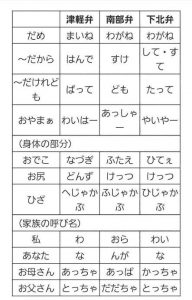 津軽弁 南部弁 下北弁
だめ まいね わがね わがね
～だから はんで すけ して・すて
～だけれども ばって ども たって
おやまぁ わいはー あっしゃー やいやー
(身体の部分)
おでこ なづぎ ふたえ ひてぇ
お尻 どんず けっつ けっつ
ひざ へじゃかぶ ふじゃかぶ ひじゃかぶ
(家族の呼び名)
私 わ おら わい
あなた な んが な
お母さん あっちゃ あっぱ かっちゃ
お父さん とっちゃ だだちゃ とっちゃ